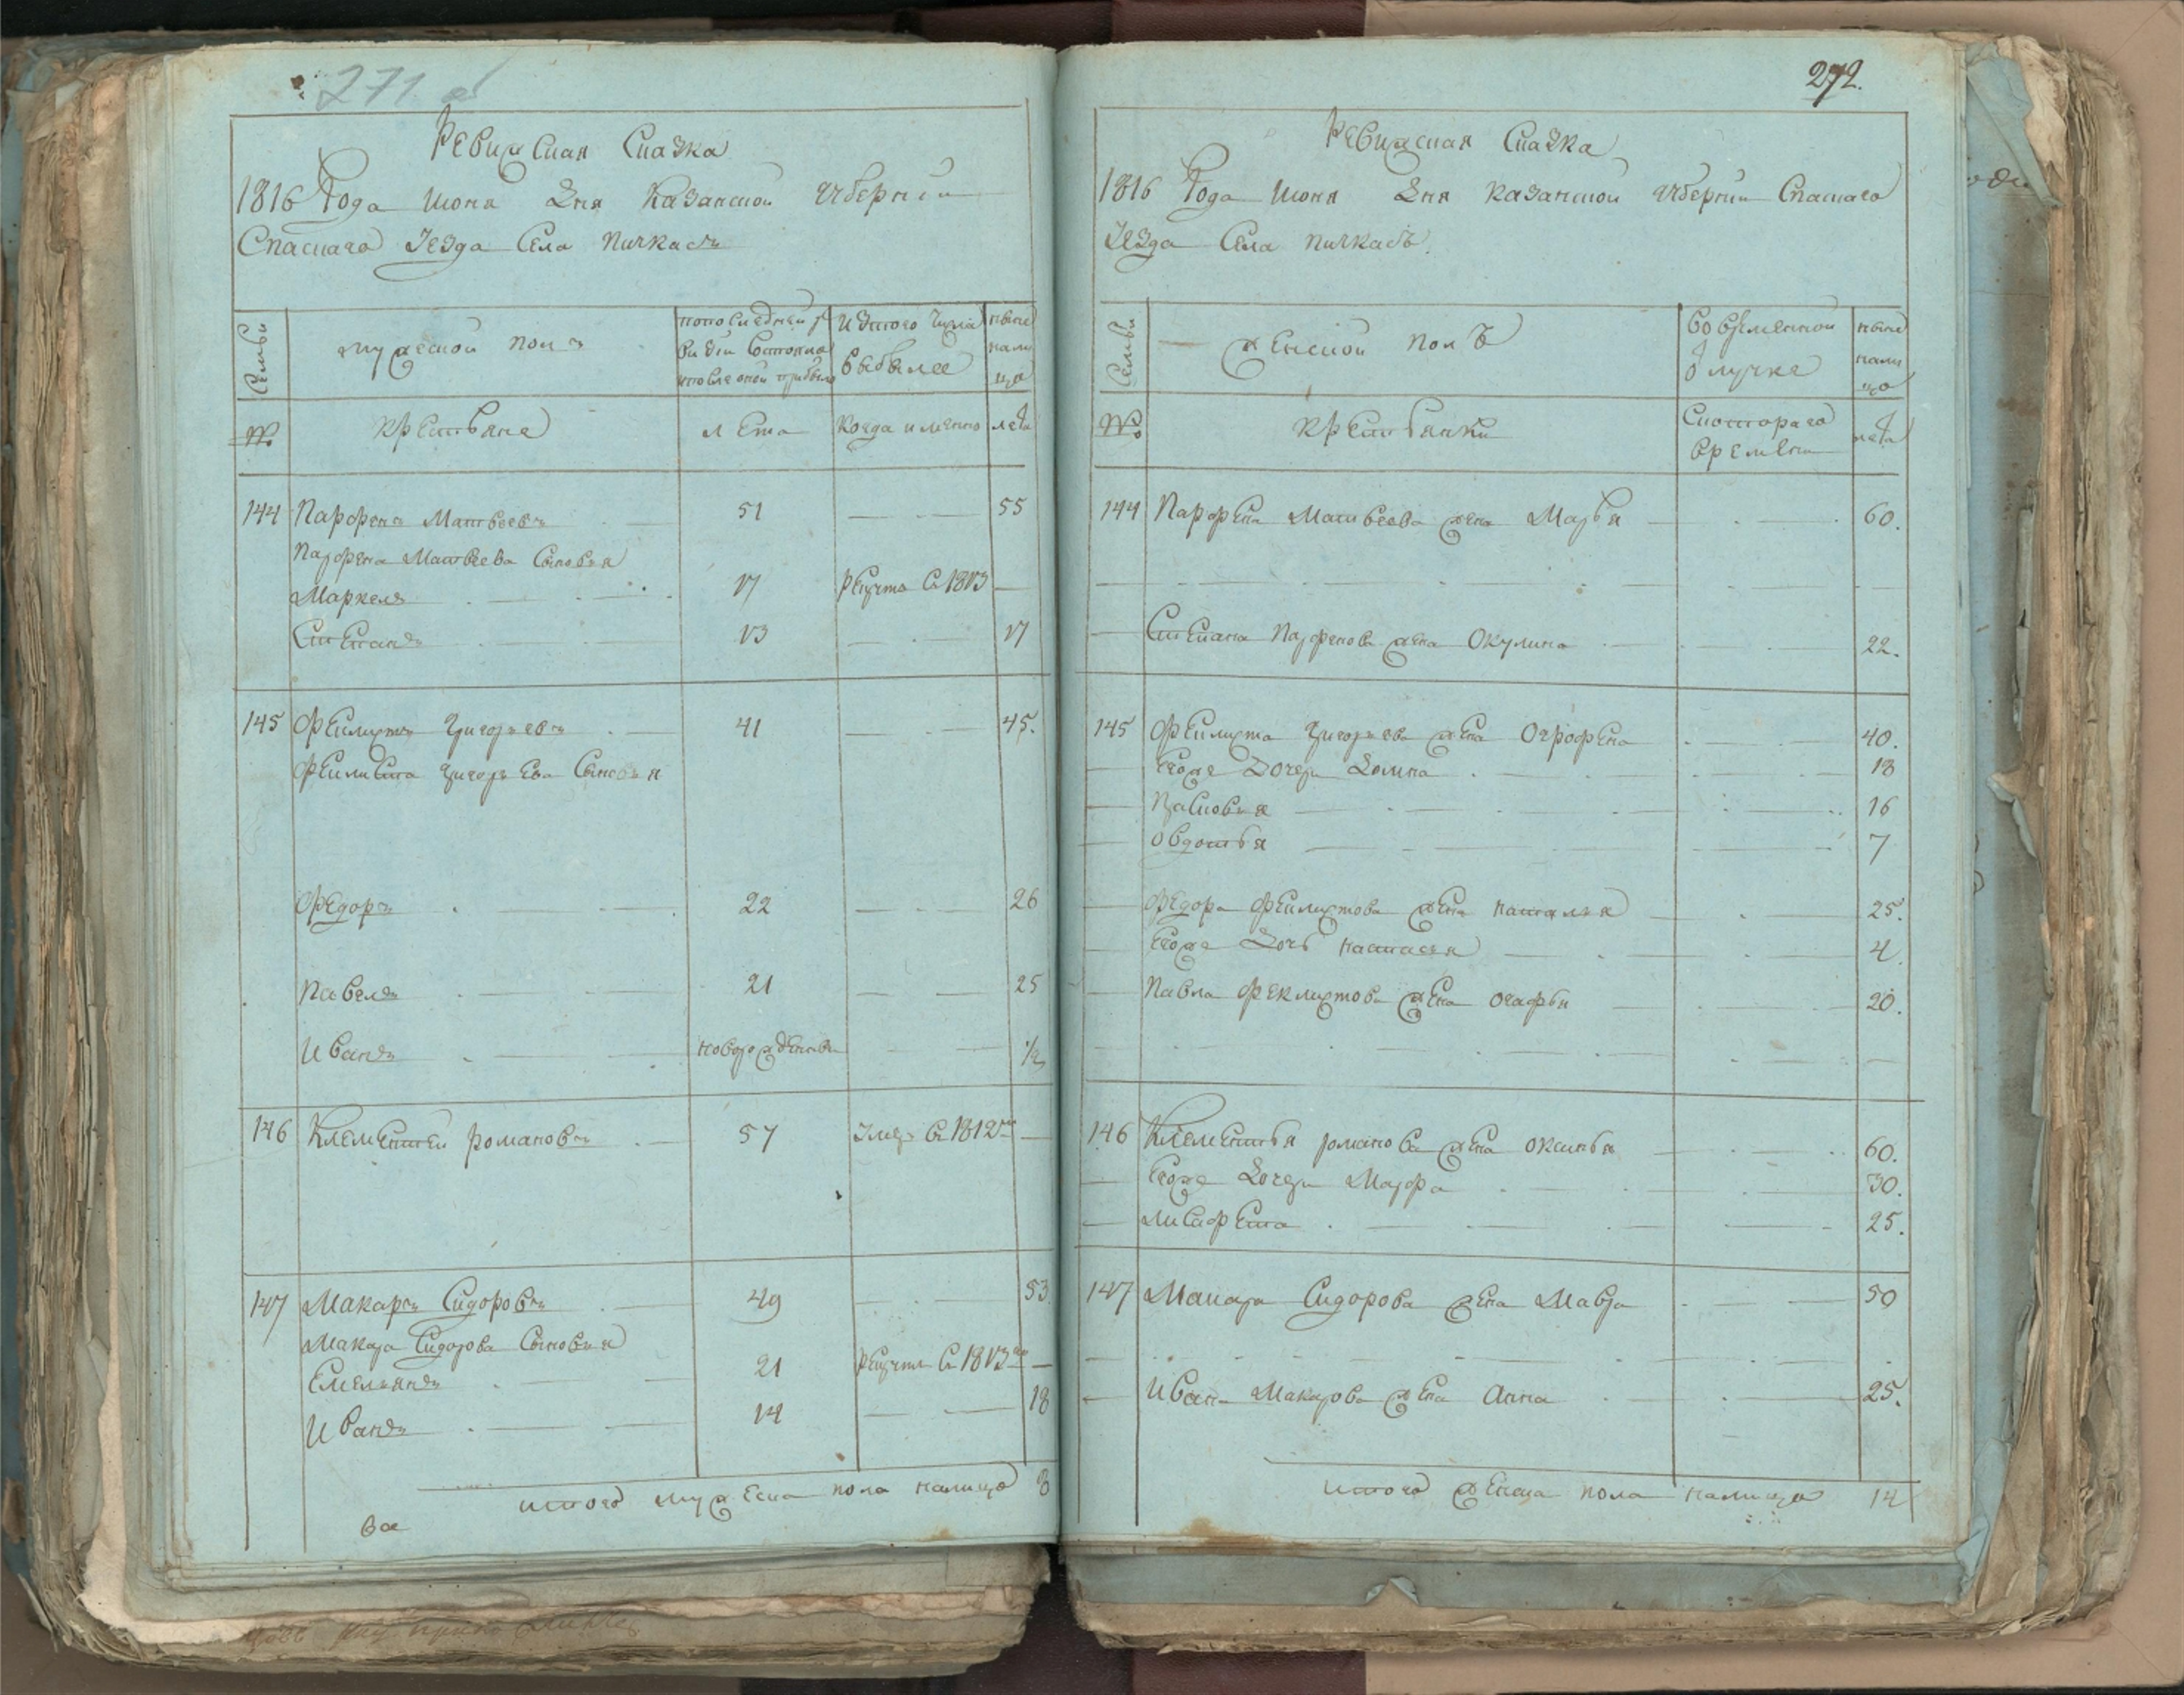 271 об
Ревижская Сказка
1816 Года Июня Дня Казанской Губернии
Спаскаго Уезда Села Пичкасъ
Семьи
мужеской полъ
по последней ревизии состояло и после оной прибыло
Изтого числа выбыло
ныне налицо
№
Крестьяне
лета
Когда именно
лета
144 Парфенъ Матвеевъ 51 55
Парфена Матвеева Сыновья
Маркелъ 17 рекрутъ въ 1813
Степанъ 13 17
145 Феклистъ Григорьевъ 41 45.
Феклиста Григорьева Сыновья
Федоръ 22 26
Павелъ 21 25
Иванъ новорожденный 1/2
146 Клементей Романовъ 57 Умеръ въ 1812м
147 Макаръ Сидоровъ 49 53
Макара Сидорова Сыновья
Емельянъ 21 рекрутъ въ 1813
Иванъ 14 18
итого мужеска пола налицо 8
272.
Ревижская Сказка
1816 Года Июня Дня Казанской Губернии Спаскаго
Уезда Села Пичкасъ
Семьи
женской полъ
Во временной отлучке
ныне налицо
№
Крестьянки
Скотораго времени
лета
144 Парфена Матвеева жена Марья 60.
Степана Парфенова жена Окулина 22.
145 Феклиста Григорьева жена Огрофена 40.
Егоже Дочери Домна 18
Прасковья 16
Овдотья 7
Федора Феклистова жена Наталья 25.
Егоже Дочь Настасья 4.
Павла Феклистова жена Огафья 20.
146 Клементья романова жена Оксинья 60.
Егоже Дочери Марфа 30.
Лисафета 25.
147 Макара Сидорова жена Мавра 50
Ивана Макарова жена Анна 25.
итого женска пола налицо 14